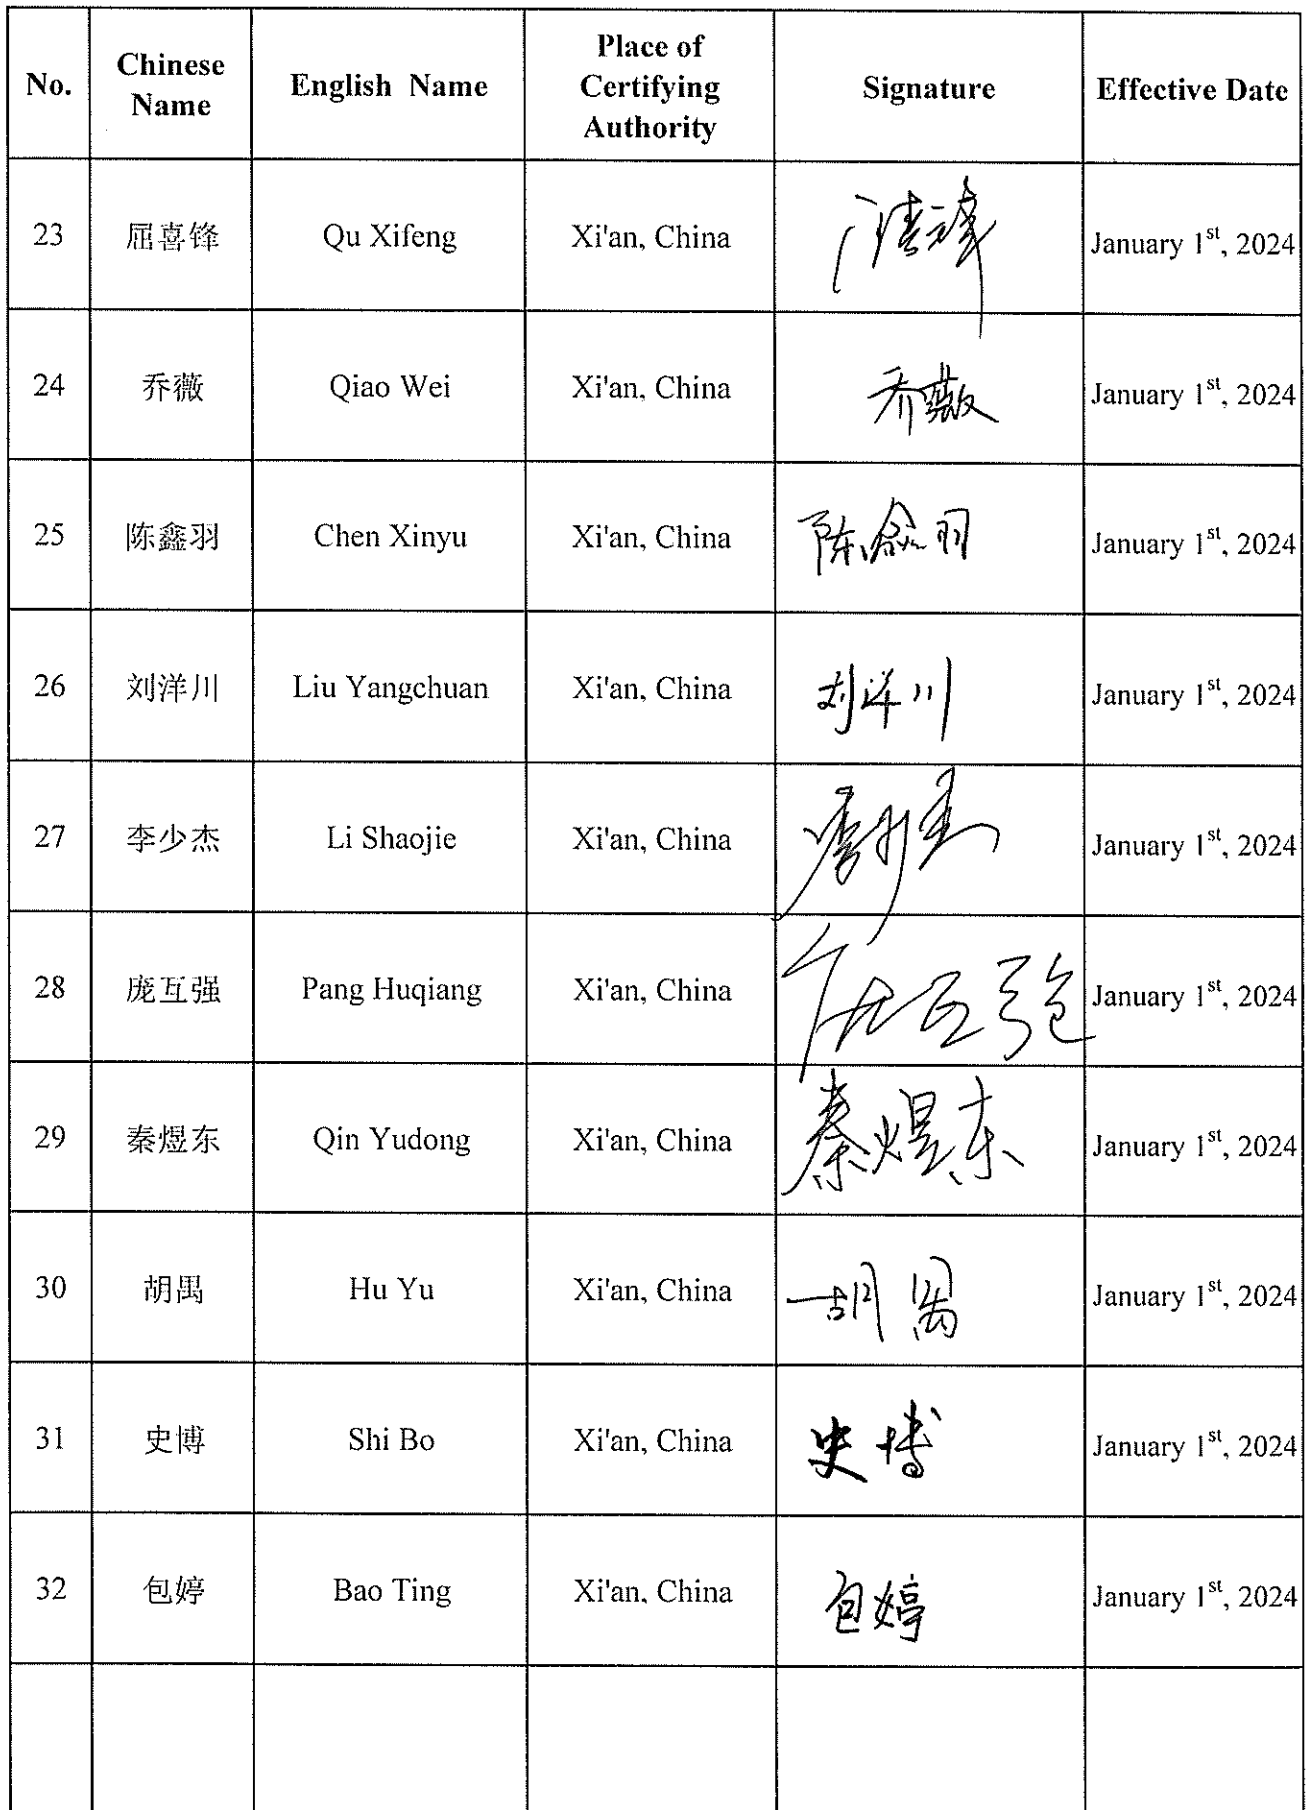 No. Chinese Name English Name Place of Certifying Authority Signature Effective Date
23 屈喜锋 Qu Xifeng Xi'an, China January 1st, 2024
24 乔薇 Qiao Wei Xi'an, China 乔薇 January 1st, 2024
25 陈鑫羽 Chen Xinyu Xi'an, China 陈鑫羽 January 1st, 2024
26 刘洋川 Liu Yangchuan Xi'an, China 刘洋川 January 1st, 2024
27 李少杰 Li Shaojie Xi'an, China 李少杰 January 1st, 2024
28 庞互强 Pang Huqiang Xi'an, China 庞互强 January 1st, 2024
29 秦煜东 Qin Yudong Xi'an, China 秦煜东 January 1st, 2024
30 胡禺 Hu Yu Xi'an, China 胡禺 January 1st, 2024
31 史博 Shi Bo Xi'an, China 史博 January 1st, 2024
32 包婷 Bao Ting Xi'an, China 包婷 January 1st, 2024